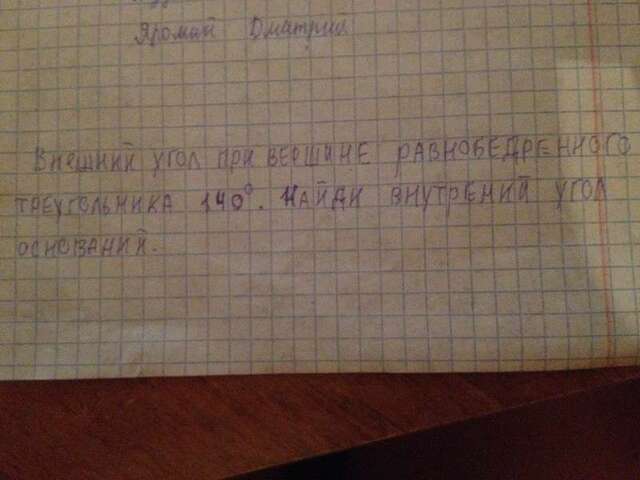 Яромай Дмитрий
Внешний угол при вершине равнобедренного
треугольника 140°. Найди внутрений угол
оснований.